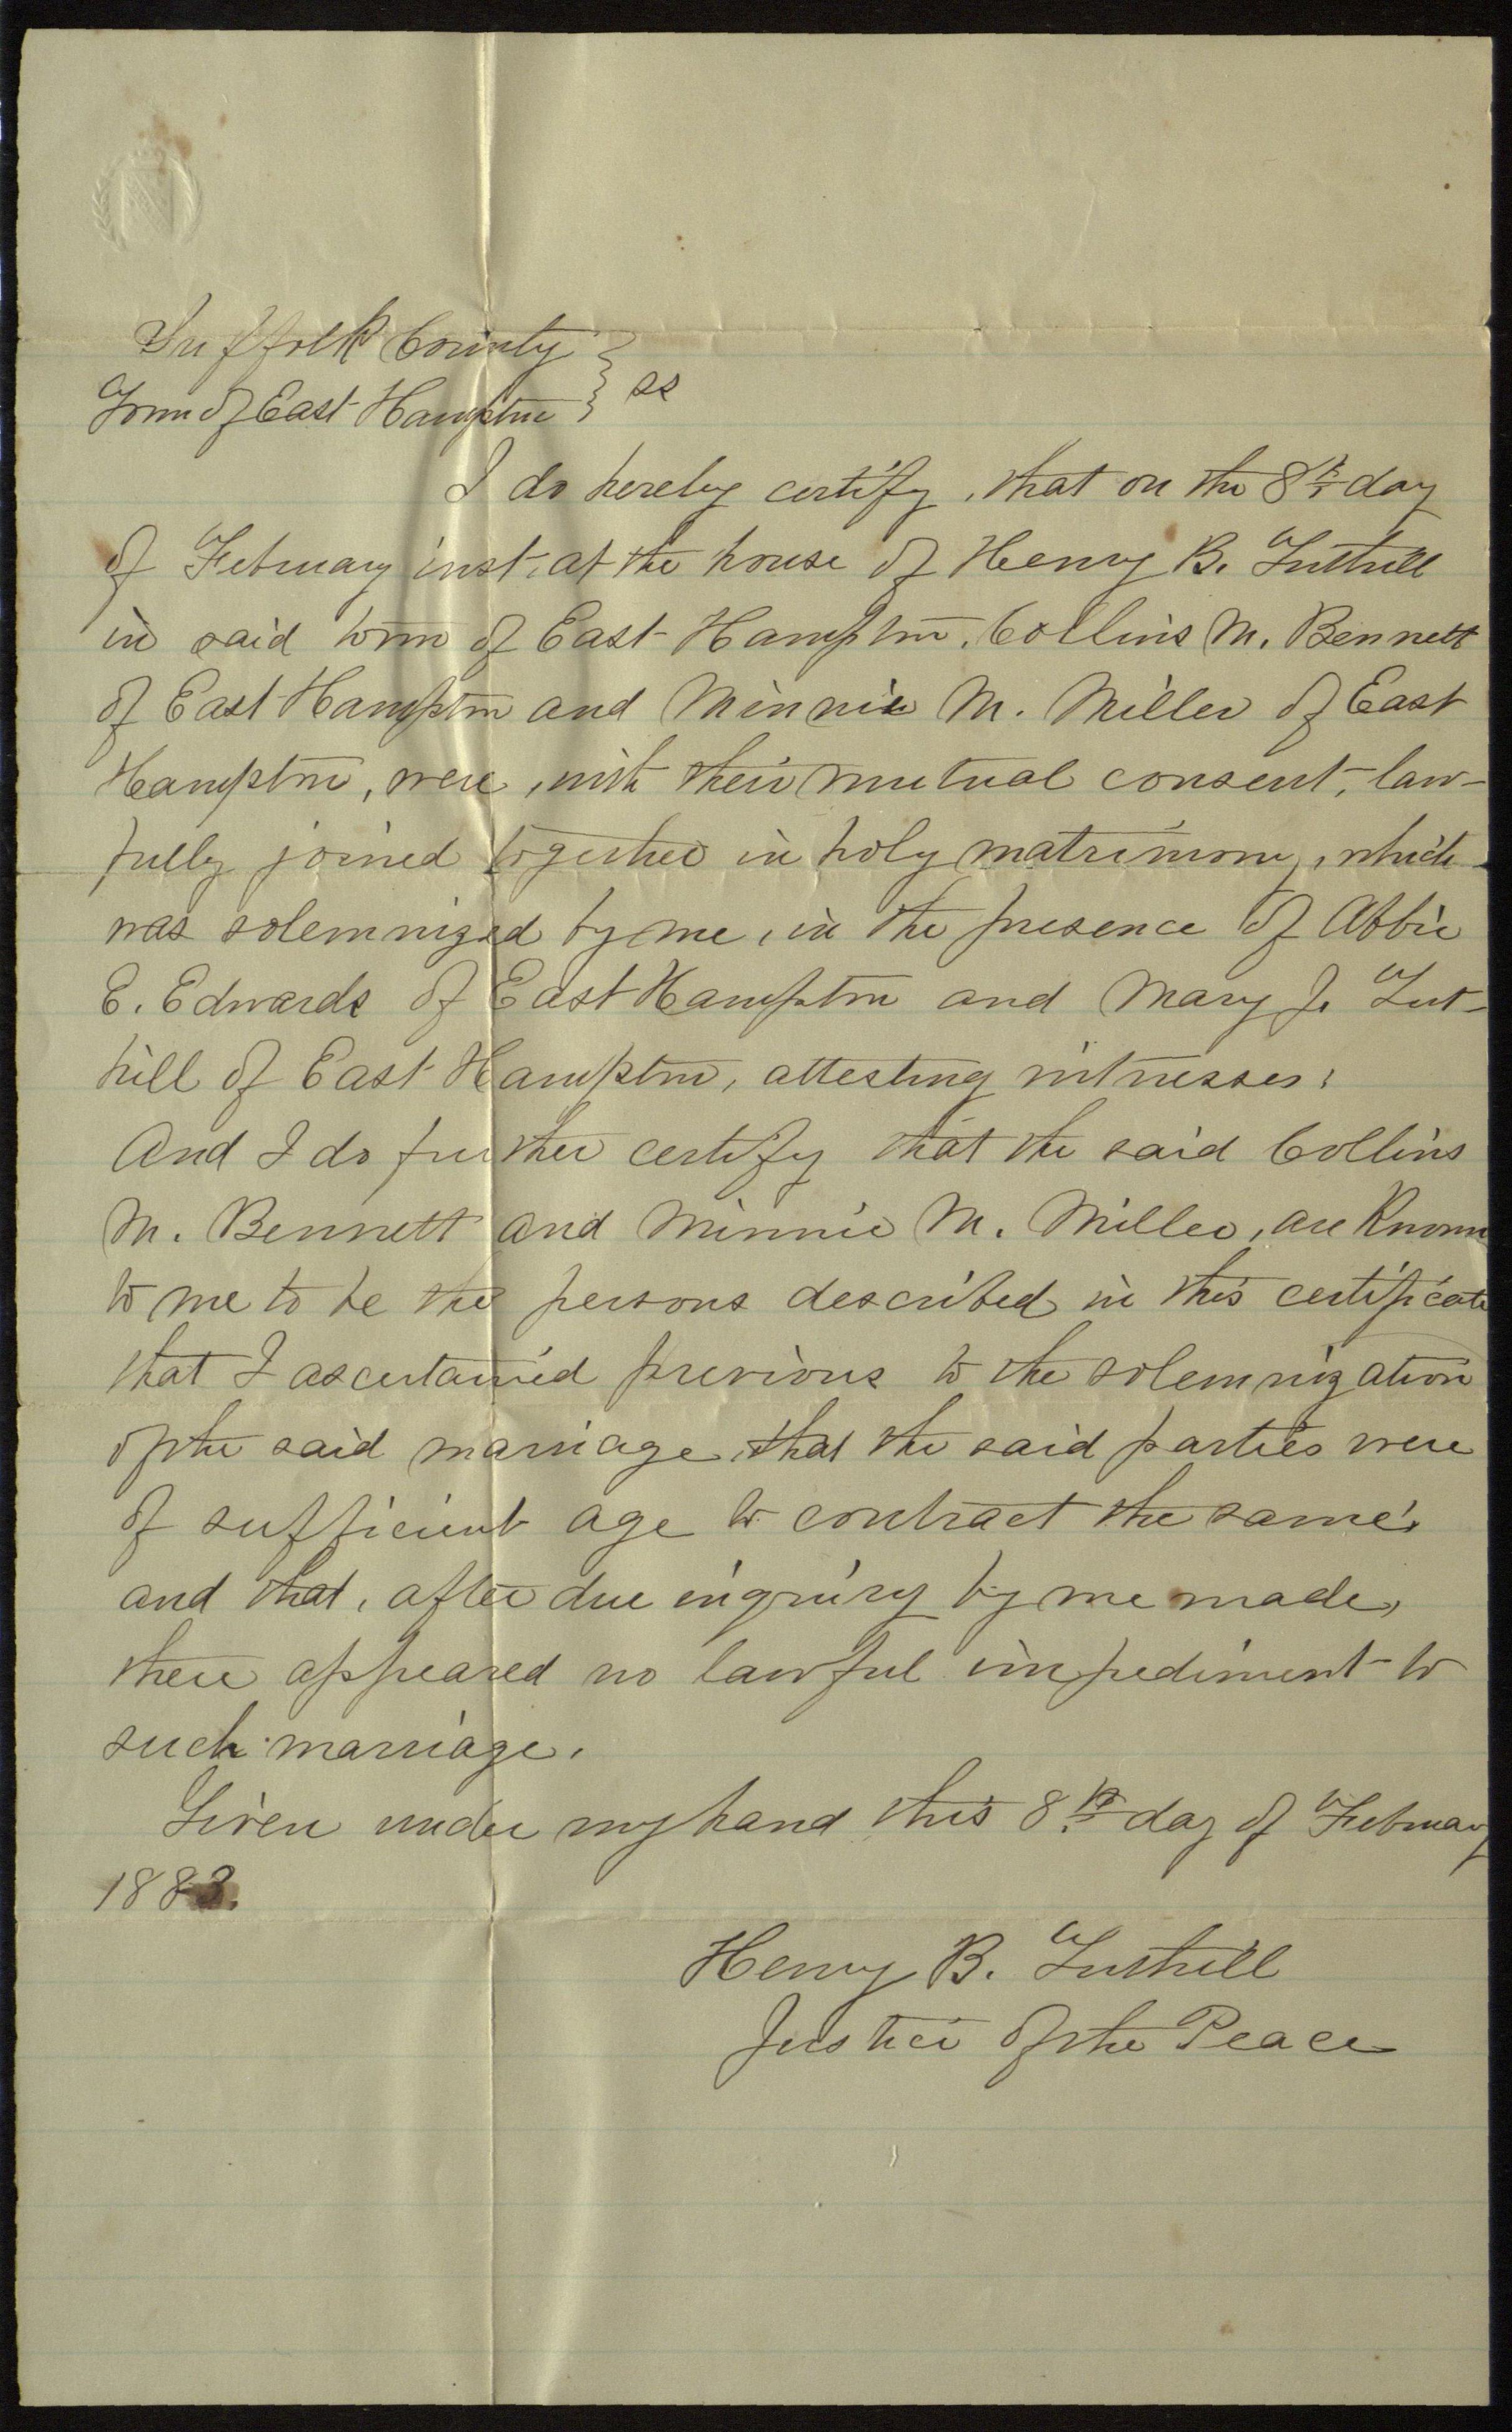 Suffolk County } ss
Town of East Hampton
I do hereby certify, that on the 8th day
of February inst, at the house of Henry B. Tuthill
in said town of East Hampton, Collins M. Bennett
of East Hampton and Minnie M. Miller of East
Hampton, were, with their mutual consent, law-
fully joined together in holy matrimony, which
was solemnized by me, in the presence of Abbie
E. Edwards of East Hampton and Mary J. Tut-
hill of East Hampton, attesting witnesses;
And I do further certify that the said Collins
M. Bennett and Minnie M. Miller, are Known
to me to be the persons described in this certificate
that I ascertained previous to the solemnization
of the said marriage, that the said parties were
of sufficient age to contract the same,
and that, after due inquiry by me made,
there appeared no lawful impediment to
such marriage.
Given under my hand this 8th day of February
1883.
Henry B. Tuthill
Justice of the Peace